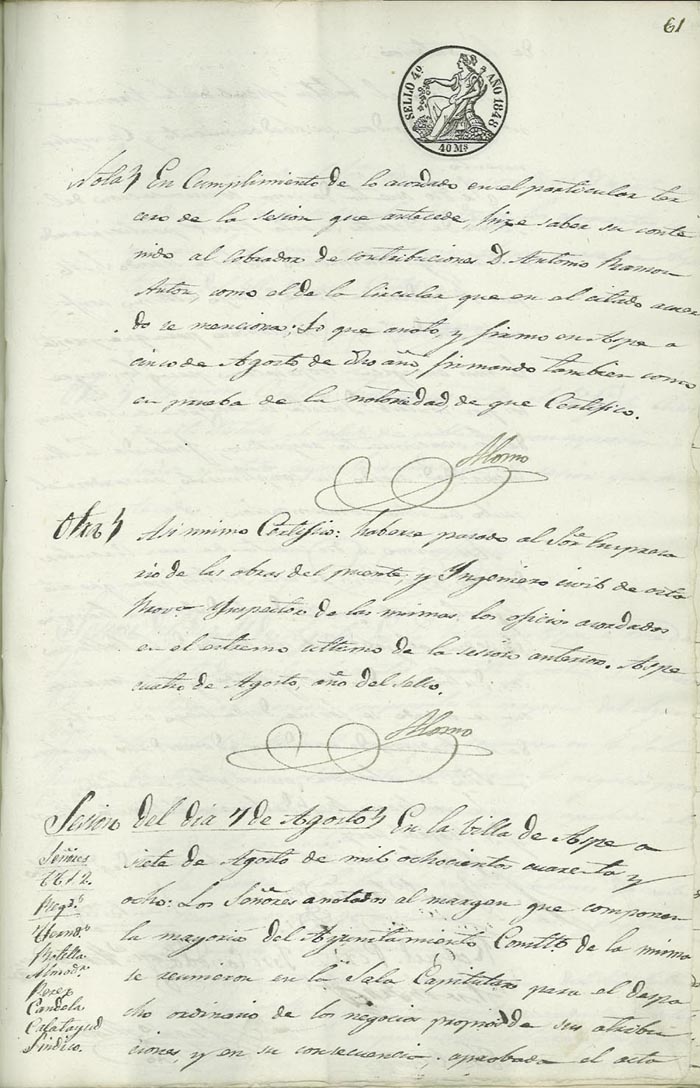 61
SELLO 4º AÑO 1848
40 Ms
Nota En Cumplimiento de lo acordado en el particular ter
cero de la sesion que antecede, hize saber su conte
nido al Cobrador de contribuciones D. Antonio Ramon
Autor, como el de la Circular que en el citado acuer
do se menciona; Lo que anoto, y firmo en Aspe a
cinco de Agosto de dho año, firmando tambien como
en prueba de la notoriedad de que Certifico.
Alomo
Otra Asi mismo Certifico: haberse pasado al Sor Empresa
rio de las obras del puente y Ingeniero civil de esta
Prova Ynspector de las mismas, los oficios acordados
en el estremo ultimo de la sesion anterior. Aspe
cuatro de Agosto, año del sello.
Alomo
Sesion del dia 7 de Agosto En la Villa de Aspe a
siete de Agosto de mil ochocientos cuarenta y
ocho: Los Señores anotados al margen que componen
la mayoria del Ayuntamiento Constl. de la misma
se reunieron en la Sala Capitular para el despa
cho ordinario de los negocios propios de sus atribu
ciones, y en su consecuencia, aprobada el acta
Señores
Tes 2.
Regs
Botella
Almodr
Perez
Candela
Calatayud
Sindico.